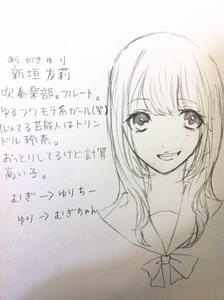 あらがきゆり
新垣 友莉
吹奏楽部。フルート。
ゆるフワモテ系ガール(笑)
似てる芸能人はトリン
ドル玲奈。
おっとりしてるけど計算
高い子。
むぎ→ゆりちー
ゆり→むぎちゃん